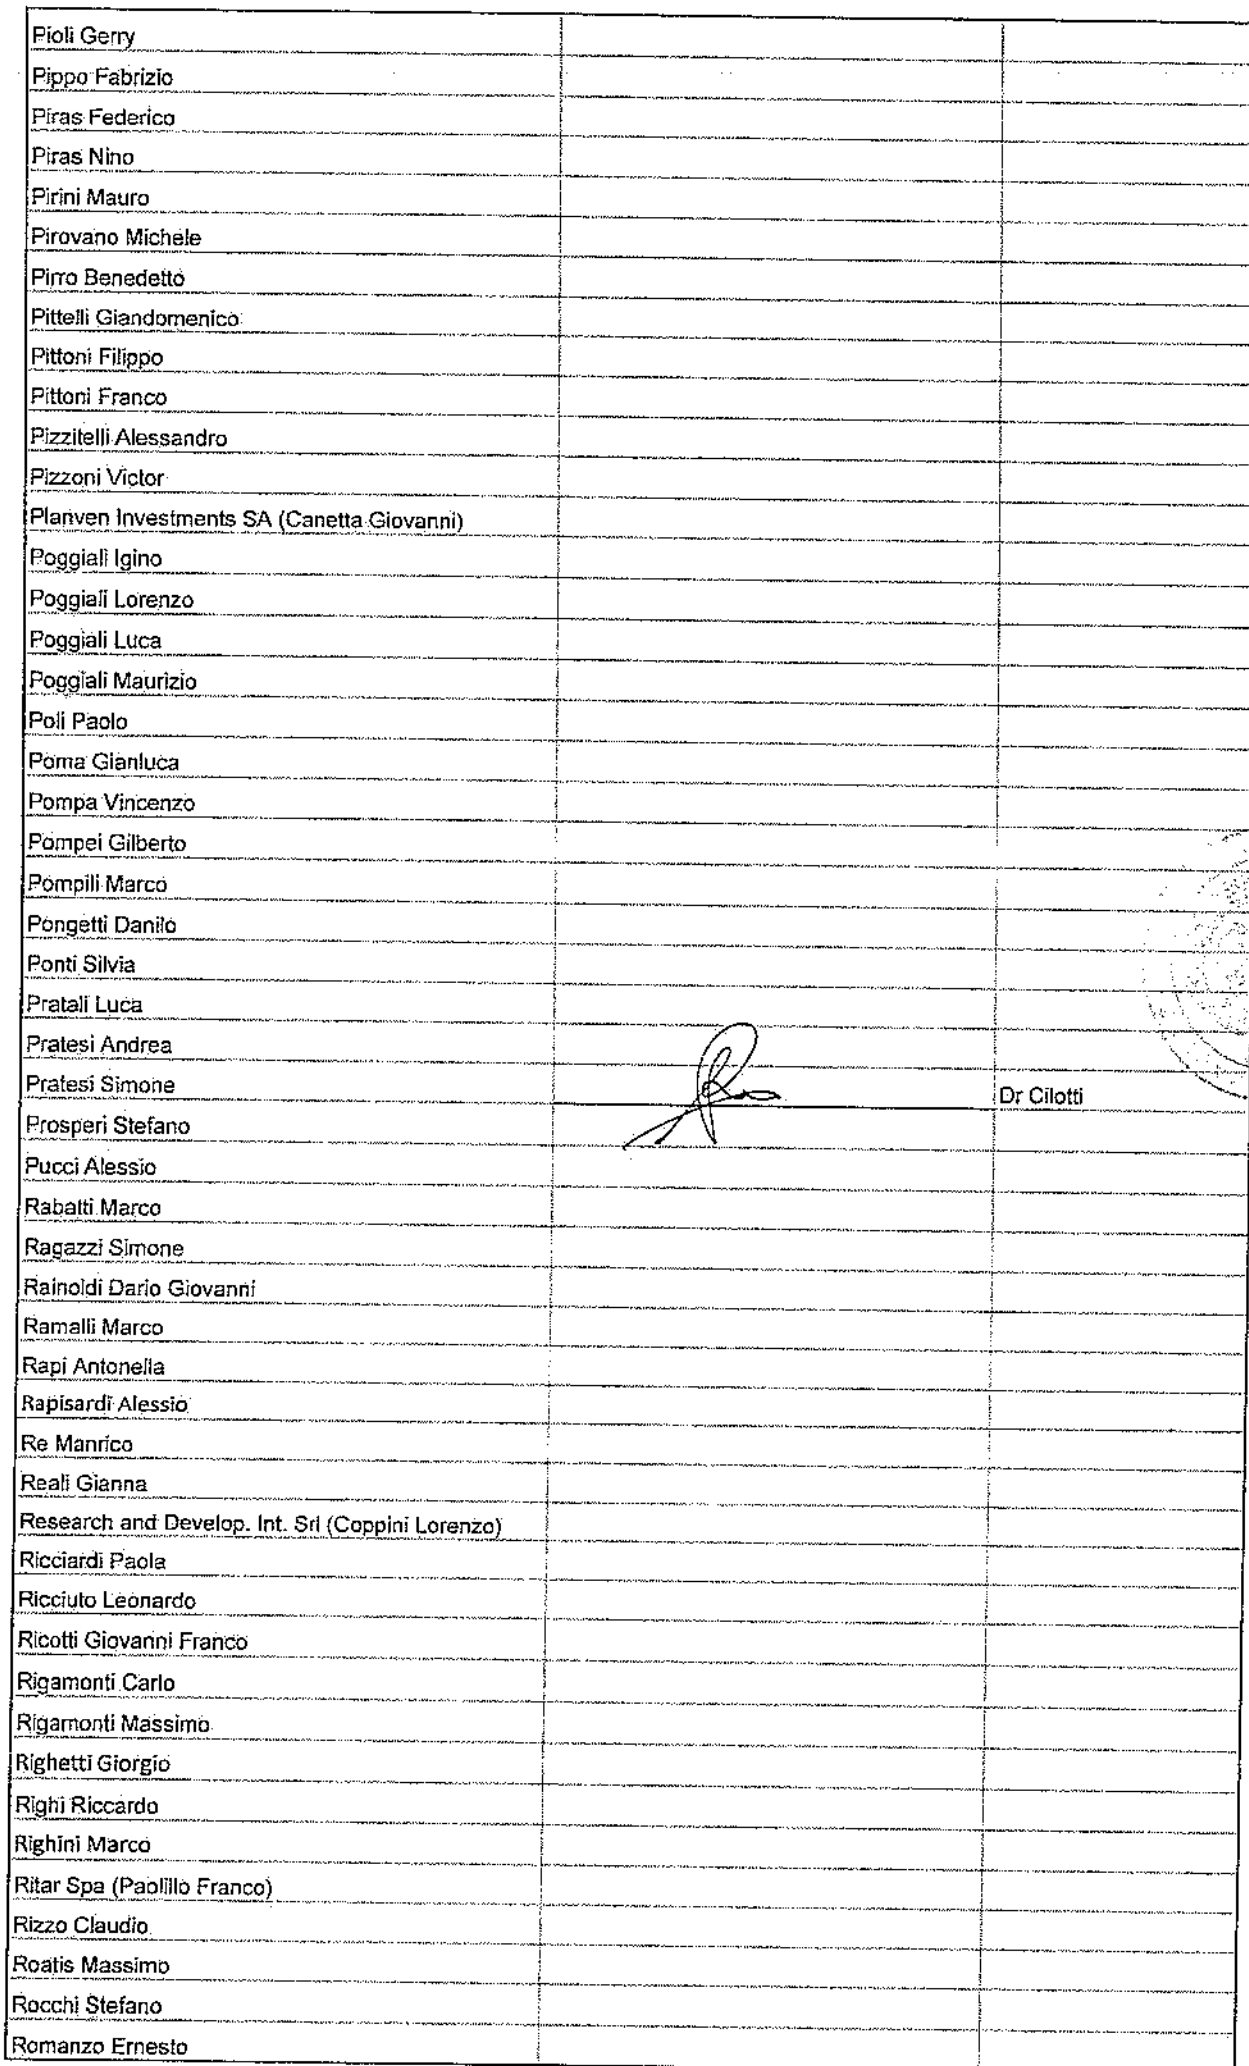 Pioli Gerry
Pippo Fabrizio
Piras Federico
Piras Nino
Pirini Mauro
Pirovano Michele
Pirro Benedetto
Pittelli Giandomenico
Pittoni Filippo
Pittoni Franco
Pizzitelli Alessandro
Pizzoni Victor
Planven Investments SA (Canetta Giovanni)
Poggiali Igino
Poggiali Lorenzo
Poggiali Luca
Poggiali Maurizio
Poli Paolo
Poma Gianluca
Pompa Vincenzo
Pompei Gilberto
Pompili Marco
Pongetti Danilo
Ponti Silvia
Pratali Luca
Pratesi Andrea
Pratesi Simone Dr Cilotti
Prosperi Stefano
Pucci Alessio
Rabatti Marco
Ragazzi Simone
Rainoldi Dario Giovanni
Ramalli Marco
Rapi Antonella
Rapisardi Alessio
Re Manrico
Reali Gianna
Research and Develop. Int. Srl (Coppini Lorenzo)
Ricciardi Paola
Ricciuto Leonardo
Ricotti Giovanni Franco
Rigamonti Carlo
Rigamonti Massimo
Righetti Giorgio
Righi Riccardo
Righini Marco
Ritar Spa (Paolillo Franco)
Rizzo Claudio
Roatis Massimo
Rocchi Stefano
Romanzo Ernesto